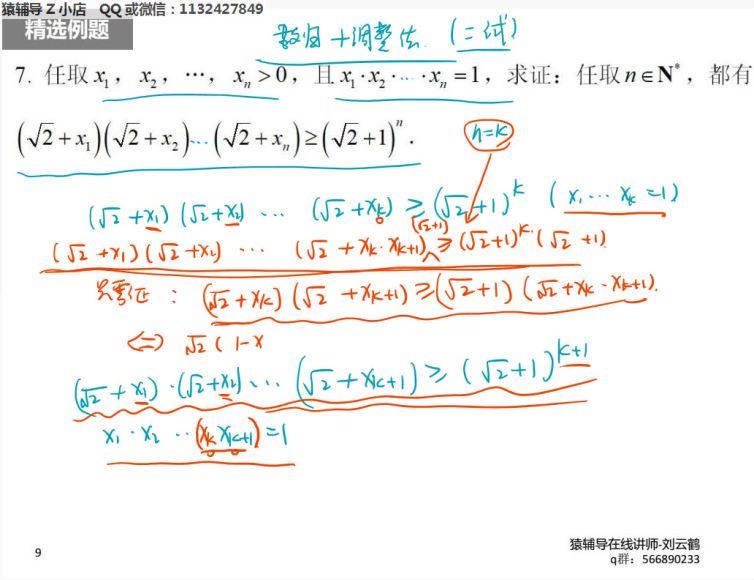 猿辅导 Z 小店 QQ 或微信：1132427849
精选例题
数归+调整法. (二试)
7. 任取 x₁, x₂, ⋯, xₙ > 0, 且 x₁·x₂·⋯·xₙ = 1, 求证：任取 n∈N*, 都有
(√2+x₁)(√2+x₂)⋯(√2+xₙ)≥(√2+1)ⁿ.
n=k
(√2+x₁)(√2+x₂) ⋯ (√2+xₖ) ≥ (√2+1)^k (x₁⋯xₖ=1)
(√2+1)
(√2+x₁)(√2+x₂) ⋯ (√2+xₖ·xₖ₊₁) ≥ (√2+1)^k·(√2+1)
只需证：(√2+xₖ)(√2+xₖ₊₁)≥(√2+1)(√2+xₖ·xₖ₊₁).
⇔ √2(1-x
(√2+x₁)·(√2+x₂)⋯(√2+xₖ₊₁)≥(√2+1)^{k+1}
x₁·x₂⋯(xₖxₖ₊₁)=1
猿辅导在线讲师-刘云鹤
9
q群：566890233